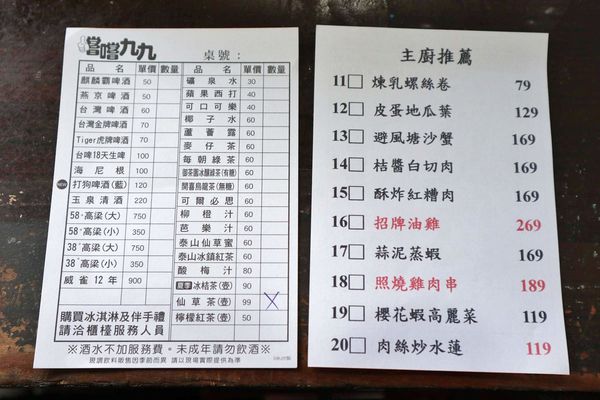 噹噹九九
桌號：
品名 單價 數量 品名 單價 數量
麒麟霸啤酒 50
燕京啤酒 60
台灣啤酒 60
台灣金牌啤酒 70
Tiger虎牌啤酒 70
台啤18天生啤 100
海尼根 100
打狗啤酒(藍) 120
玉泉清酒 220
58°高梁(大) 750
58°高梁(小) 350
38°高梁(大) 700
38°高梁(小) 350
威雀12年 900
購買冰淇淋及伴手禮
請洽櫃檯服務人員
礦泉水 30
蘋果西打 40
可口可樂 40
椰子水 50
蘆薈露 50
麥仔茶 50
每朝綠茶 50
御茶園冰釀綠茶(有糖) 50
開喜烏龍茶(無糖) 50
可爾必思 50
柳橙汁 50
芭樂汁 50
泰山仙草蜜 50
泰山冰鎮紅茶 50
酸梅汁 80
夏季冰桔茶(壺) 90
仙草茶(壺) 99 X
檸檬紅茶(壺) 50
※酒水不加服務費。未成年請勿飲酒※
現調飲料販售因季節而異 請以現場實際提供為準
主廚推薦
11 煉乳螺絲卷 79
12 皮蛋地瓜葉 129
13 避風塘沙蟹 169
14 桔醬白切肉 169
15 酥炸紅糟肉 169
16 招牌油雞 269
17 蒜泥蒸蝦 169
18 照燒雞肉串 189
19 櫻花蝦高麗菜 119
20 肉絲炒水蓮 119